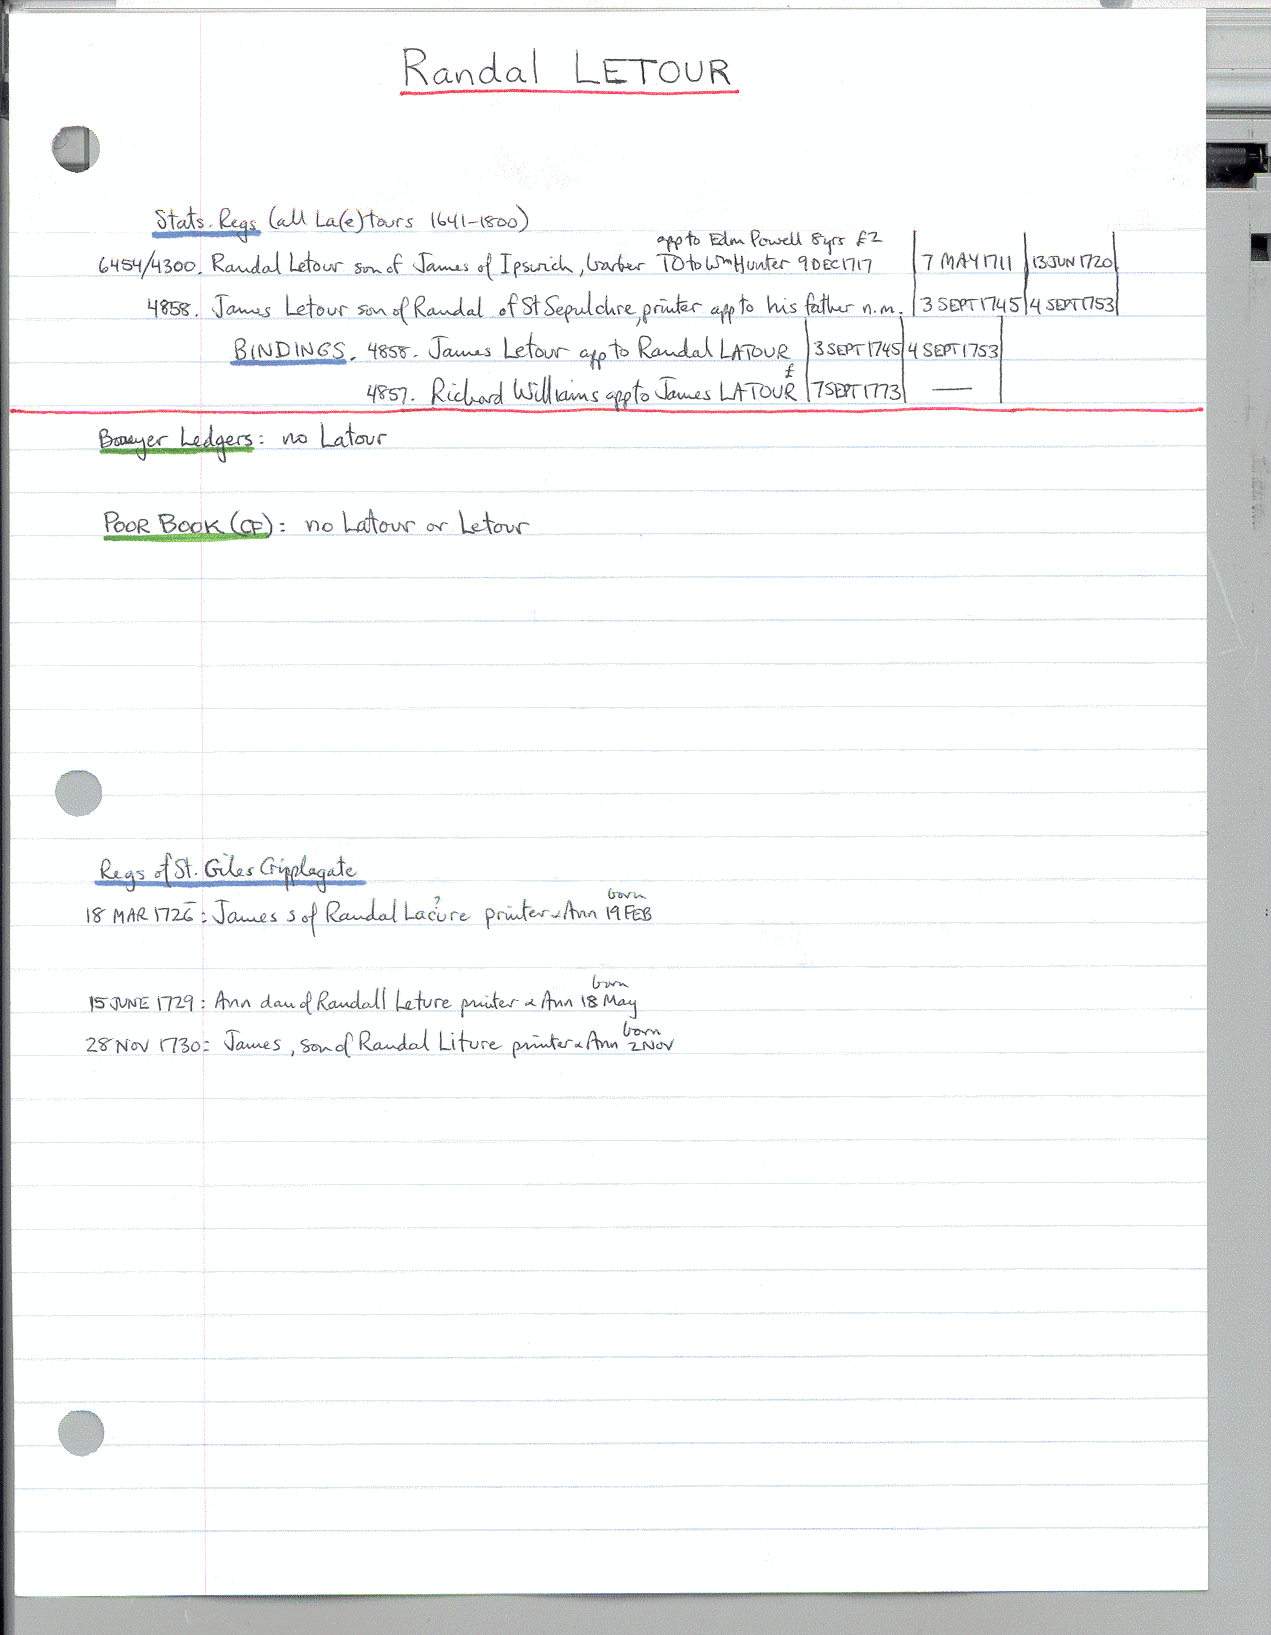 Randal LETOUR
Stats. Regs (all La(e)tours 1641-1800)
app to Edm Powell 8yrs £2
6454/4300. Randal Letour son of James of Ipswich, barber TO to Wm Hunter 9 DEC 1717 7 MAY 1711 13 JUN 1720
4858. James Letour son of Randal of St Sepulchre, printer app to his father n.m. 3 SEPT 1745 4 SEPT 1753
BINDINGS. 4858. James Letour app to Randal LATOUR 3 SEPT 1745 4 SEPT 1753
£
4857. Richard Williams app to James LATOUR 7 SEPT 1773 —
Bowyer Ledgers: no Latour
POOR BOOK (CF): no Latour or Letour
Regs of St. Giles Cripplegate
born
18 MAR 1726: James s of Randal Lacure? printer & Ann 19 FEB
born
15 JUNE 1729: Ann dau of Randall Leture printer & Ann 18 May
born
28 NOV 1730: James, son of Randal Liture printer & Ann 2 NOV